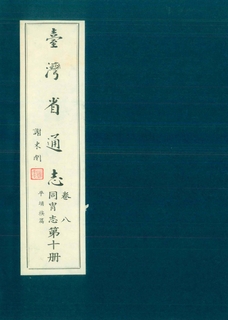 臺灣省通志
卷八
同冑志第十册
平埔族篇
謝東閔